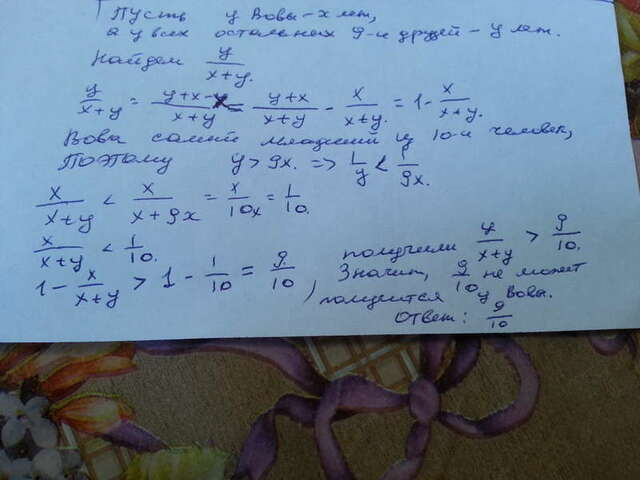 Пусть у Вовы - x лет,
а у всех остальных 9-и друзей - y лет.
Найдем y/(x+y).
y/(x+y) = (y+x-x)/(x+y) = (y+x)/(x+y) - x/(x+y) = 1 - x/(x+y).
Вова самый младший из 10-и человек,
поэтому y > 9x. => 1/y < 1/9x.
x/(x+y) < x/(x+9x) = x/10x = 1/10.
x/(x+y) < 1/10.
1 - x/(x+y) > 1 - 1/10 = 9/10,
получили y/(x+y) > 9/10.
Значит, 9/10 не может
получится у Вовы.
Ответ: 9/10